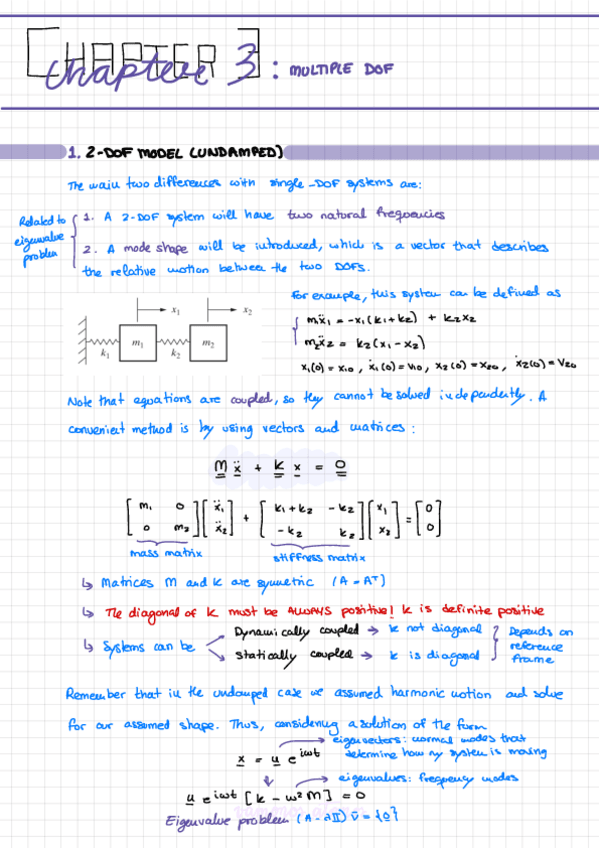 [CHAPTER]
Chapter 3 : MULTIPLE DOF
1. 2-DOF MODEL (UNDAMPED)
The main two differences with single-DOF systems are:
Related to eigenvalue problem
1. A 2-DOF system will have two natural frequencies
2. A mode shape will be introduced, which is a vector that describes
the relative motion between the two DOFs.
For example, this system can be defined as
x₁ x₂
k₁ m₁ k₂ m₂
m₁ẍ₁ = -x₁(k₁+k₂) + k₂x₂
m₂ẍ₂ = k₂(x₁-x₂)
x₁(0) = x₁₀, ẋ₁(0) = v₁₀, x₂(0) = x₂₀, ẋ₂(0) = v₂₀
Note that equations are coupled, so they cannot be solved independently. A
convenient method is by using vectors and matrices:
M ẍ + k x = 0
[m₁ 0; 0 m₂] [ẍ₁; ẍ₂] + [k₁+k₂ -k₂; -k₂ k₂] [x₁; x₂] = [0; 0]
mass matrix
stiffness matrix
↳ Matrices M and k are symmetric (A = Aᵀ)
↳ The diagonal of k must be ALWAYS positive! k is definite positive
↳ Systems can be
Dynamically coupled → k not diagonal
Statically coupled → k is diagonal
Depends on reference frame
Remember that in the undamped case we assumed harmonic motion and solve
for our assumed shape. Thus, considering a solution of the form
x = u e^{iωt}
eigenvectors: normal modes that
determine how my system is moving
eigenvalues: frequency modes
u e^{iωt} [k - ω²M] = 0
Eigenvalue problem (A - λII) v̄ = {0}